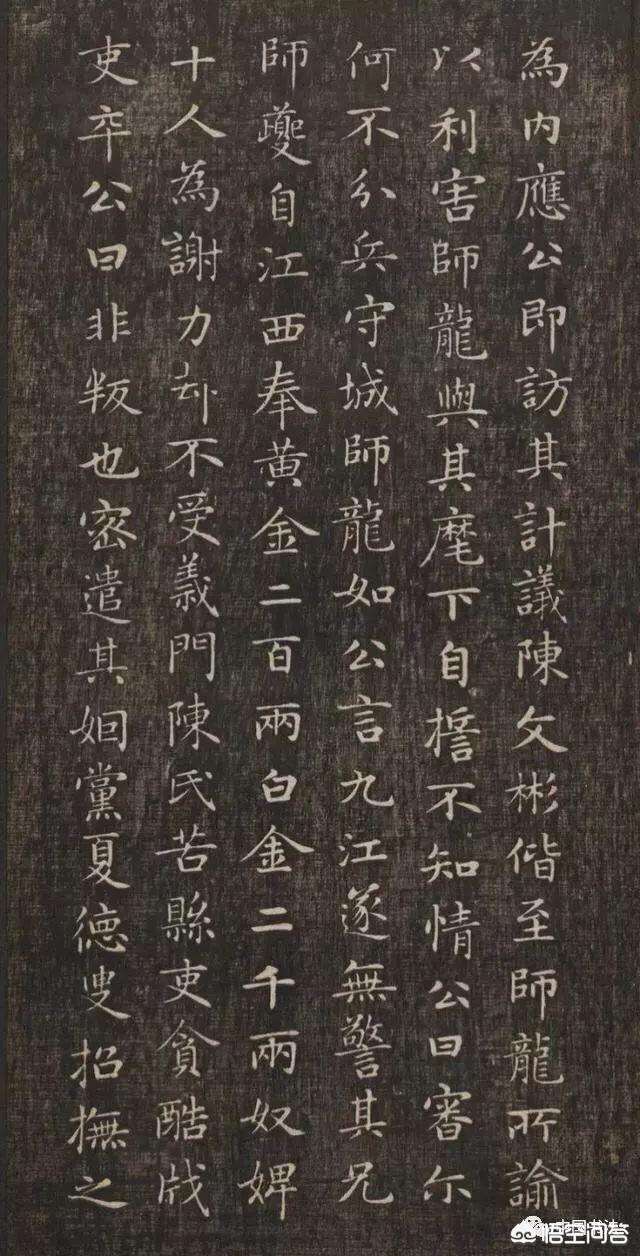 為內應公即訪其計議陳文彬偕至師龍所諭
以利害師龍與其麾下自擔不知情公曰審尔
何不分兵守城師龍如公言九江遂無警其兄
師夔自江西奉黄金二百兩白金二千兩奴婢
十人為謝力却不受義門陳氏苦縣吏貪酷戕
吏卒公曰非叛也密遣其姻黨夏德叟招撫之
中国书法
悟空问答